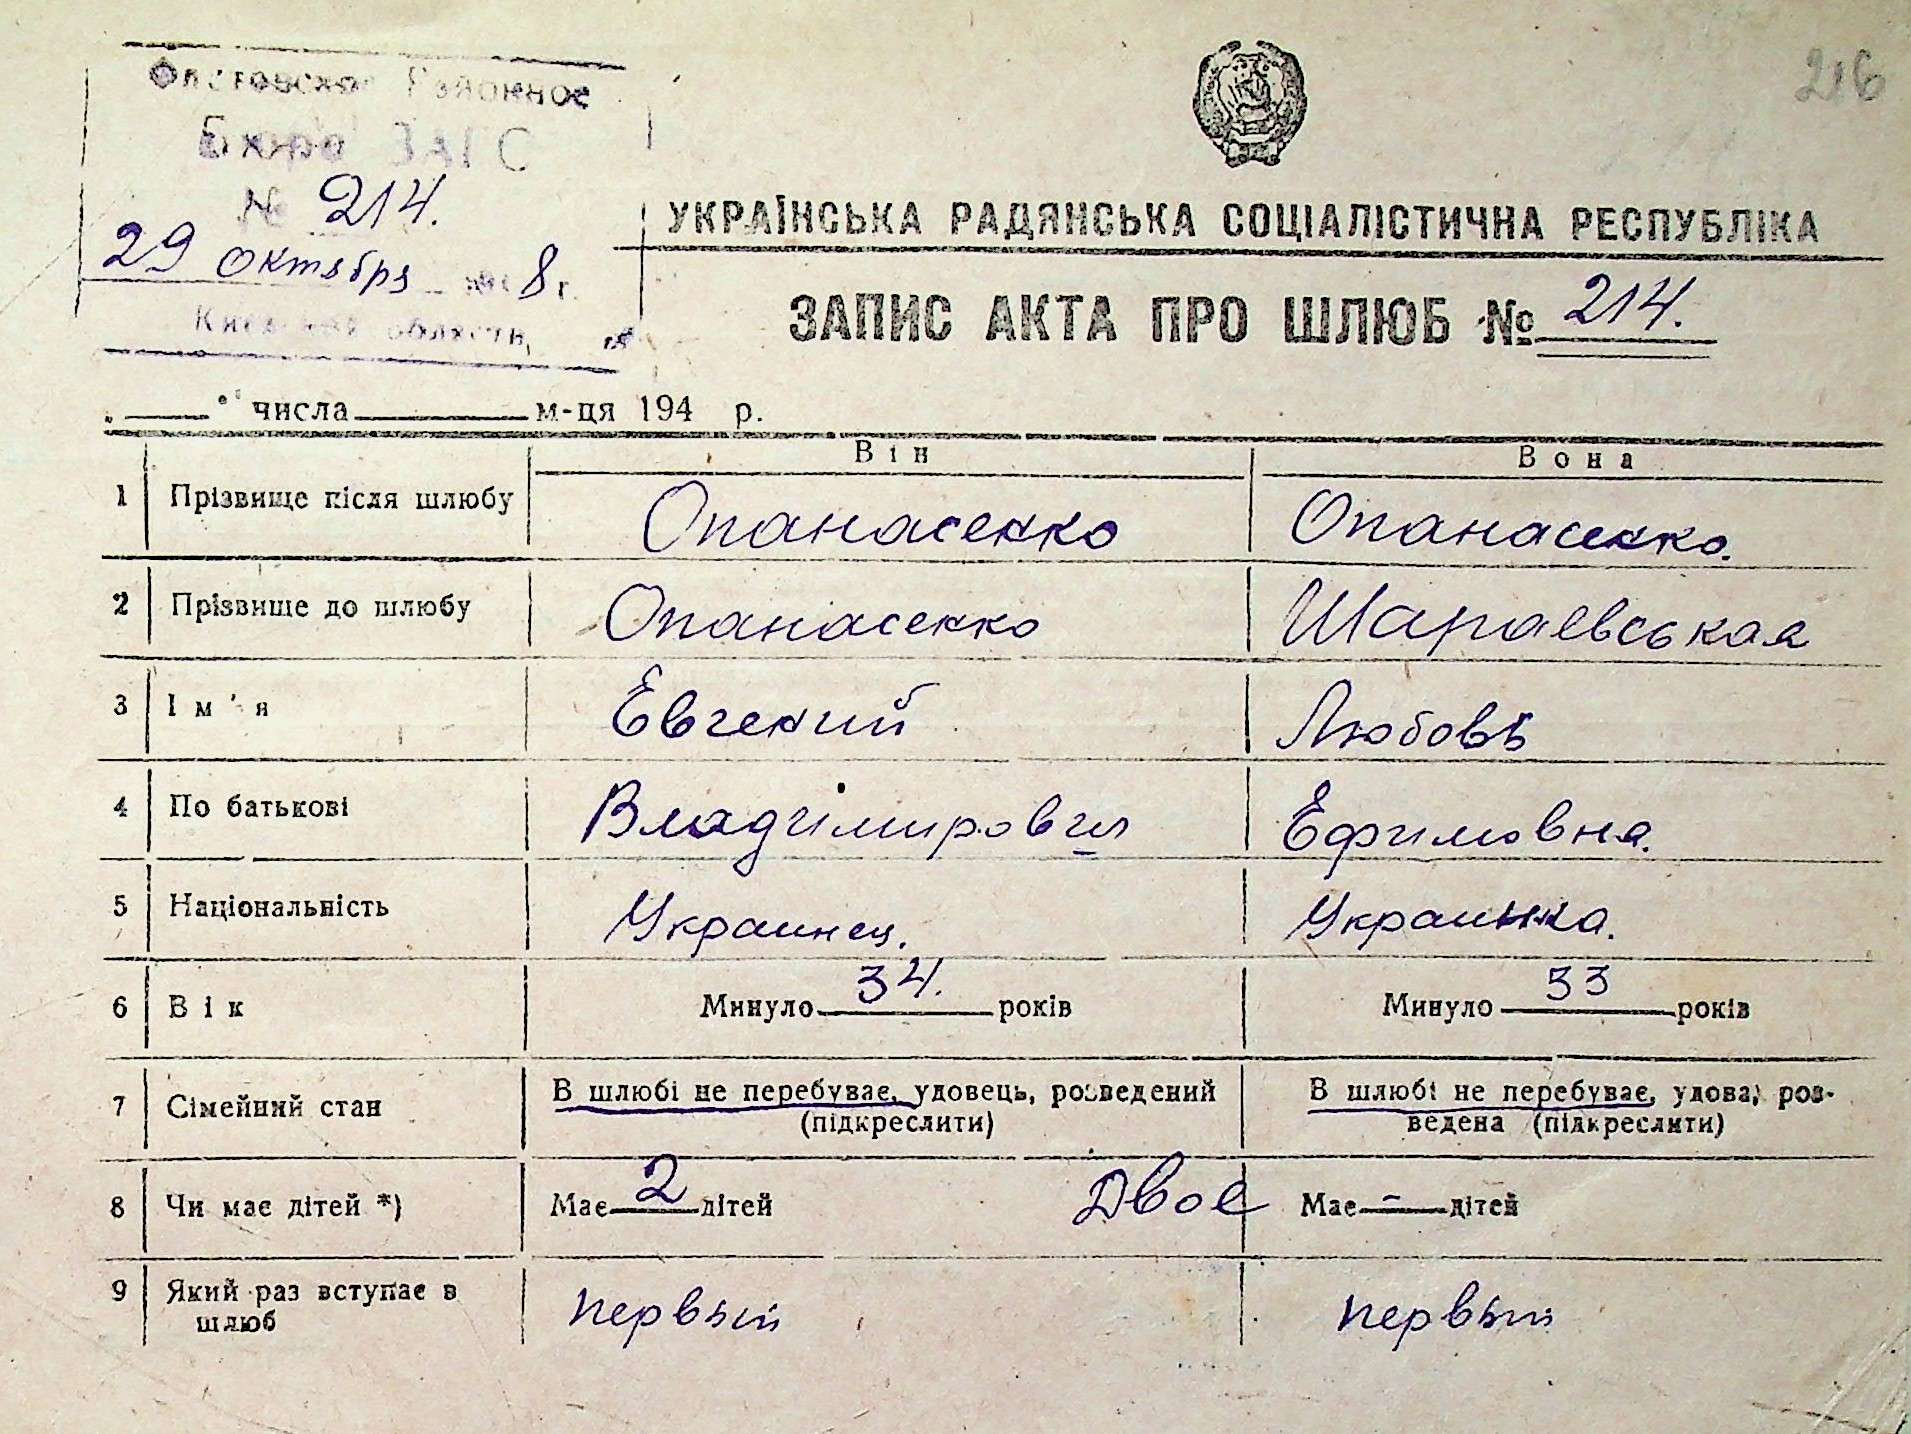 216
Фастовское Районное
Бюро ЗАГС
№ 214.
29 октября 8 г.
Киевской области
УКРАЇНСЬКА РАДЯНСЬКА СОЦІАЛІСТИЧНА РЕСПУБЛІКА
ЗАПИС АКТА ПРО ШЛЮБ № 214.
числа м-ця 194 р.
Він Вона
1 Прізвище після шлюбу Опанасенко Опанасенко.
2 Прізвище до шлюбу Опанасенко Шараевськая
3 Ім'я Евгений Любовь
4 По батькові Владимирович Ефимовна.
5 Національність Украинец. Украинка.
6 Вік Минуло 34. років Минуло 33 років
7 Сімейний стан В шлюбі не перебуває, удовець, розведений В шлюбі не перебуває, удова, роз-
(підкреслити) ведена (підкреслити)
8 Чи має дітей *) Має 2 дітей Двое Має - дітей
9 Який раз вступає в первый первый
шлюб